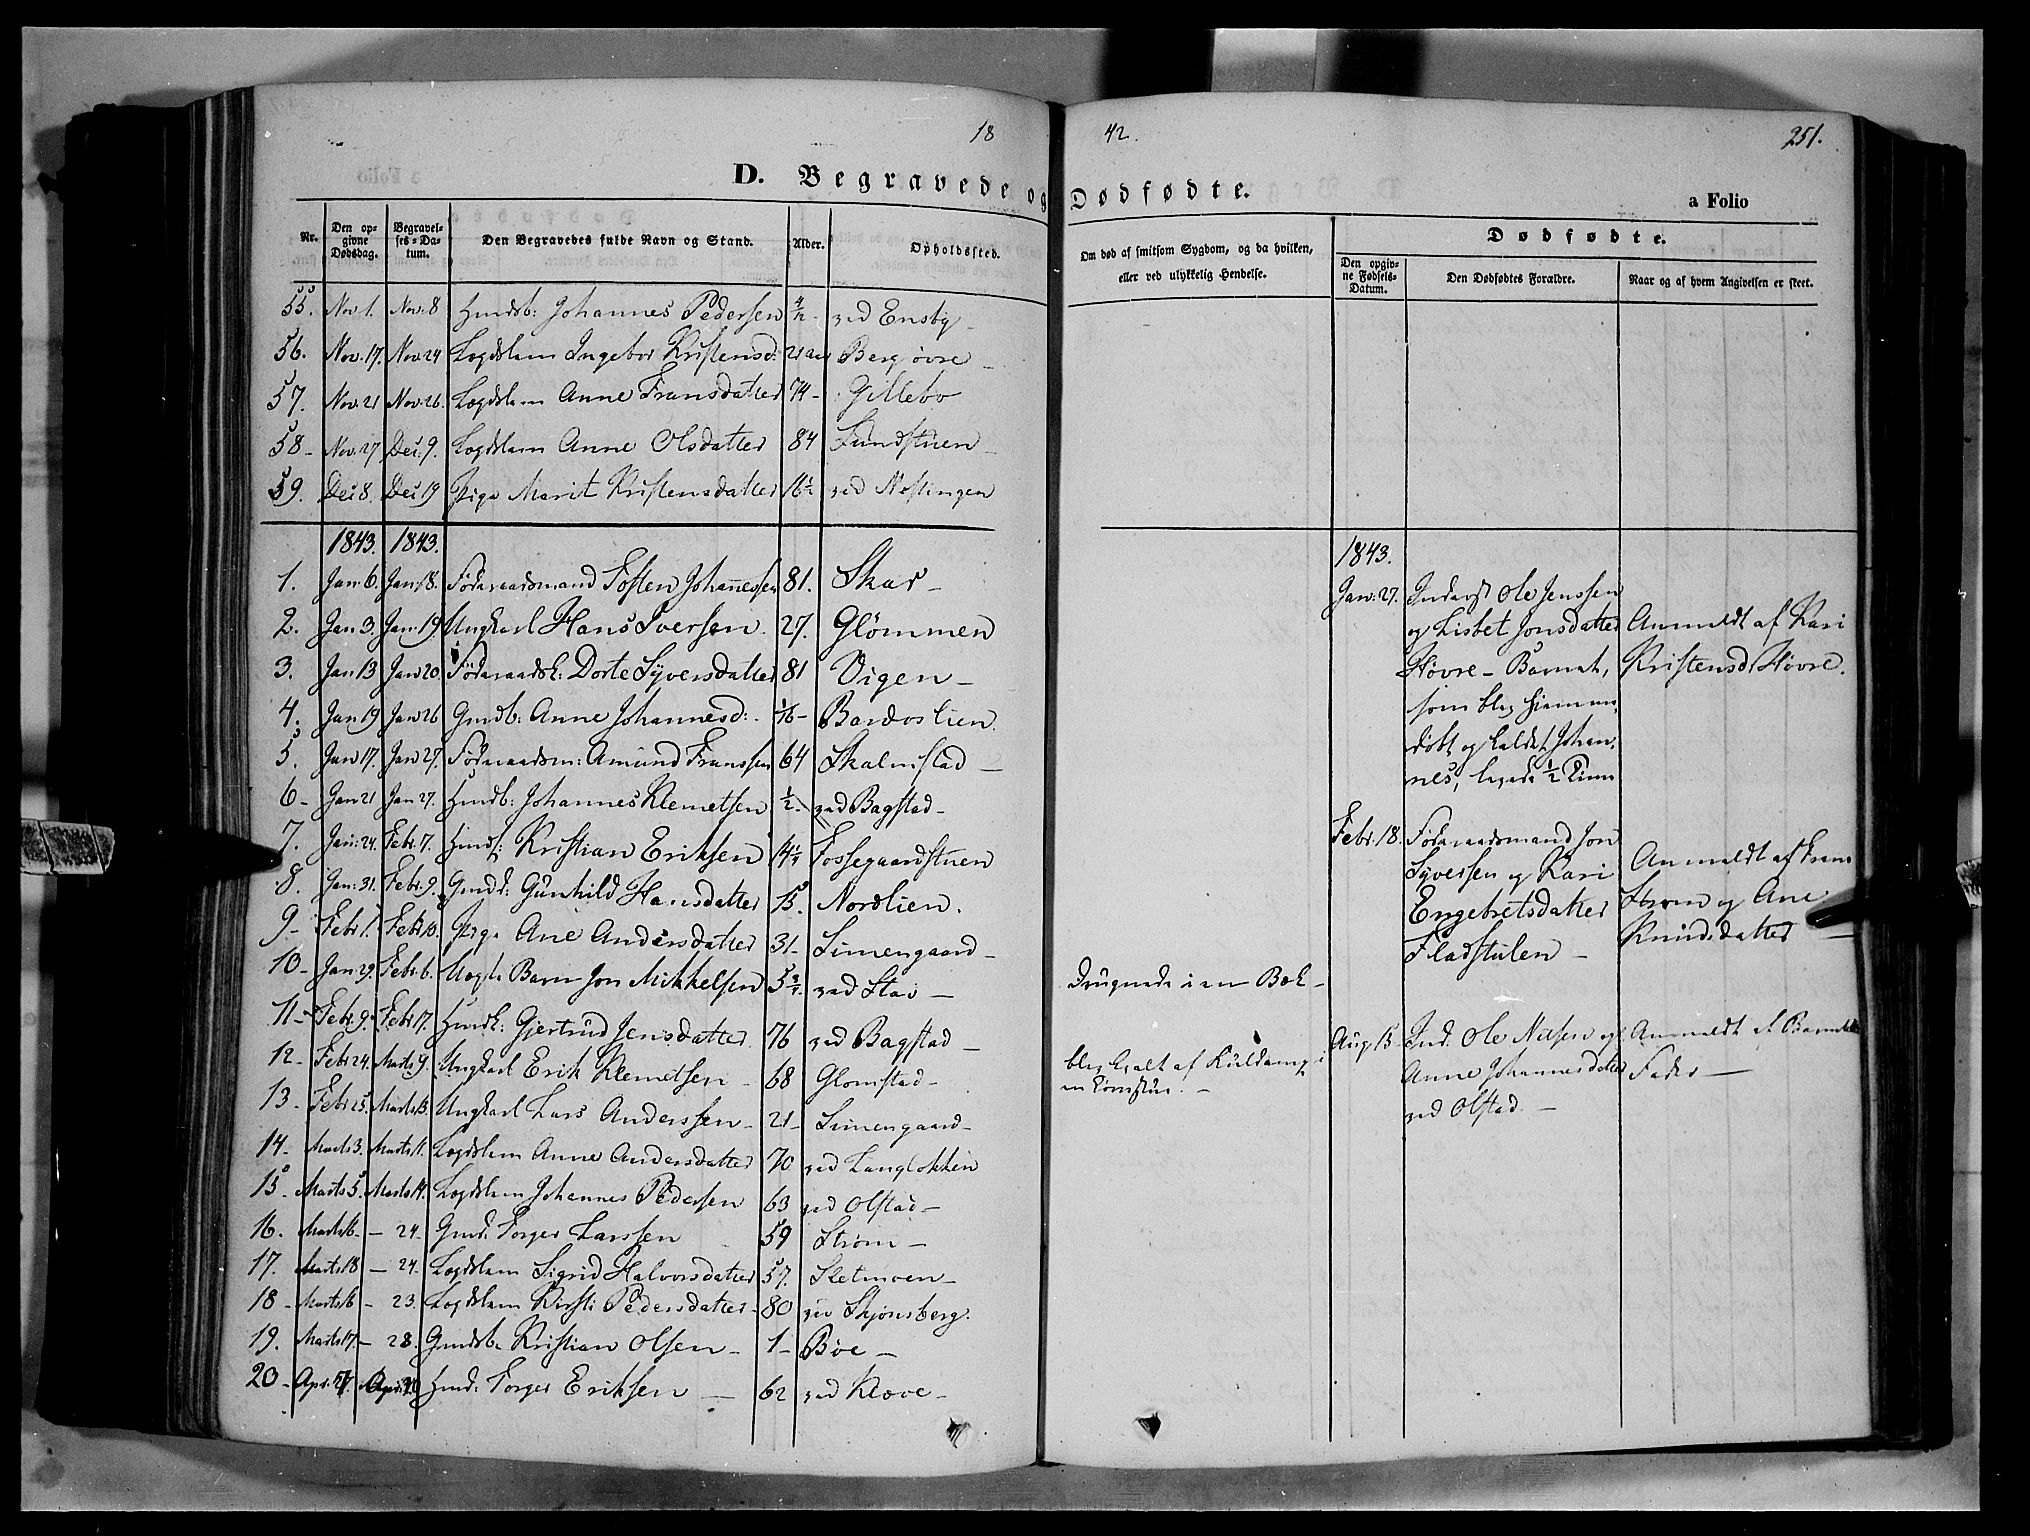 18
42.
251.
D. Begravede og Dødfødte.
a Folio
Nr.
Den op-
givne
Dødsdag.
Begravel-
ses-Da-
tum.
Den Begravedes fulde Navn og Stand.
Alder.
Opholdssted.
Om død af smitsom Sygdom, og da hvilken,
eller ved ulykkelig Hendelse.
Dødfødte.
Den opgiv-
ne Fødsels-
Datum.
Den Dødfødtes Forældre.
Naar og af hvem Angivelsen er skeet.
55. Nov. 1. Nov. 8 Huusb: Johannes Pedersen ved Ensby
56. Nov. 17. Nov. 24 Lægdslem Ingebor Kristensd: 21 aar Berg øvre
57. Nov. 21 Nov. 26. Lægdslem Anne Fransdatter 74 Gillebo
58 Nov. 27 Dec. 9. Lægdslem Anne Olsdatter 84 Sundstuen
59. Dec 8. Dec 19 Pige Marit Kristensdatter 16½ ved Nostingen
1843. 1843.
1. Jan. 6. Jan. 18. Føderaadsmand Tosten Johannessen 81. Skar
2. Jan 3. Jan. 19 Ungkarl Hans Iversen 27. Glømmen
3. Jan 13 Jan 20. Føderaadsk: Dorte Syversdatter 81 Vigen
4. Jan 19 Jan 26 Gmdb: Anne Johannesd: Bardoslien.
5. Jan 17. Jan 27. Føderaadsm: Amund Franssen 64 Skalmstad
6 Jan 21 Jan 27. Huusb: Johannes Klemetsen ½ ved Bagstad
7. Jan: 24. Febr. 7. Kristian Eriksen Fossegaardstuen
8. Jan: 31. Febr. 9. Gmd: Gunhild Hansdatter 15. Nordlien.
9 Febr 1. Febr. 10. Pige Ane Andersdatter 31 Simengaard
10 Jan 29. Febr. 6. Uægte Barn Jon Mikkelsen 5¾ ved Stav Druknede i en Bæk
11 Febr. 9. Febr 17. Huusk: Gjertrud Jensdatter 76 ved Bagstad
12 Febr 24. Marts 9. Ungkarl Erik Klemetsen 68 Glomstad blev qvalt af Kuldamp i
en Tømstue.
13. Febr 25. Marts 13. Ungkarl Lars Anderssen 21 Simengaard
14 Marts 3. Marts 11. Lægdslem Anne Andersdatter 70 ved Langlokken
15 Marts 5. Marts 14. Lægdslem Johannes Pedersen 63 ved Olstad
16. Marts 16 24. Gmd: Torger Larssen 59 Strøm
17. Marts 18 24. Lægdslem Sigrid Halvorsdatter 57. Sletmoen
18 Marts 16 23. Lægdslem Kirsti Pedersdatter 80 ved Skjønsberg.
19. Marts 17. 28. Gmdsb. Kristian Olsen 1 Bøe
20 Apr. Apr. Huusm: Torger Eriksen 62 ved Kløve
1843.
Jan: 27. Inderst Ole Jenssen
og Lisbet Jonsdatter
Høvre Barnet,
som blev hjemme-
døbt og kaldet Johan-
nes, levede ½ Time
Anmeldt af Kari
Kristensd. Høvre.
Febr. 18. Føderaadsmand Jon
Syversen og Kari
Engebretsdatter
Fladstulen
Anmeldt af Frans
Strøm og Ane
Knudsdatter
Aug 15 Ind: Ole Nilsen og
Anne Johannesdatter
ved Olstad.
Anmeldt af Barnets
Fader